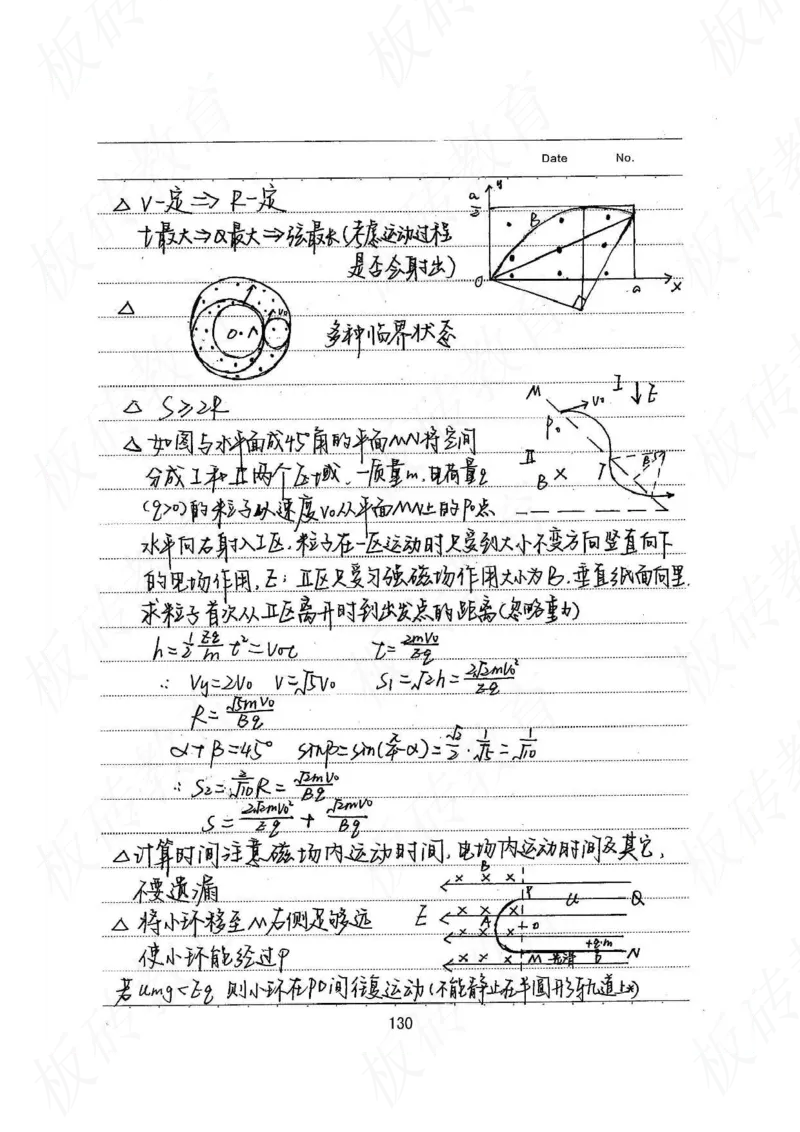 Date No.
△ V一定 ⇒ R一定
t最大⇒α最大⇒弦最长(考虑运动过程
是否会射出)
y
a/2
B
O
a
x
△
O
v₀
多种临界状态
△ S≥2R
M
P₀
v₀
I
↓E
II
B ×
T
△ 如图与水平面成45°角的平面MN将空间
分成I和II两个区域,一质量m,电荷量q
(q>0)的粒子以速度v₀从平面MN上的P₀点
水平向右射入I区,粒子在一区运动时只受到大小不变方向竖直向下
的电场作用,E;II区只受匀强磁场作用大小为B,垂直纸面向里,
求粒子首次从II区离开时到出发点的距离(忽略重力)
h=½ Eq/m t²=v₀t t=2mv₀/Eq
∴ Vy=2v₀ V=√5v₀ S₁=√2h=2√2mv₀²/Eq
R=√5mv₀/Bq
α+β=45° sinβ=sin(π/4-α)=√2/2·1/√5=1/√10
∴ S₂=2/√10 R=√2mv₀/Bq
S=2√2mv₀²/Eq+√2mv₀/Bq
△计算时间注意磁场内运动时间,电场内运动时间及其它,
不要遗漏
△ 将小环移至M右侧足够远
使小环能经过P
B
× × ×
P
u
Q
E
× × ×
A
O
× × ×
+q·m
× × ×
M 光滑 D N
若umg<Eq 则小环在PD间往复运动(不能静止在半圆形轨道上)
130
板砖教育